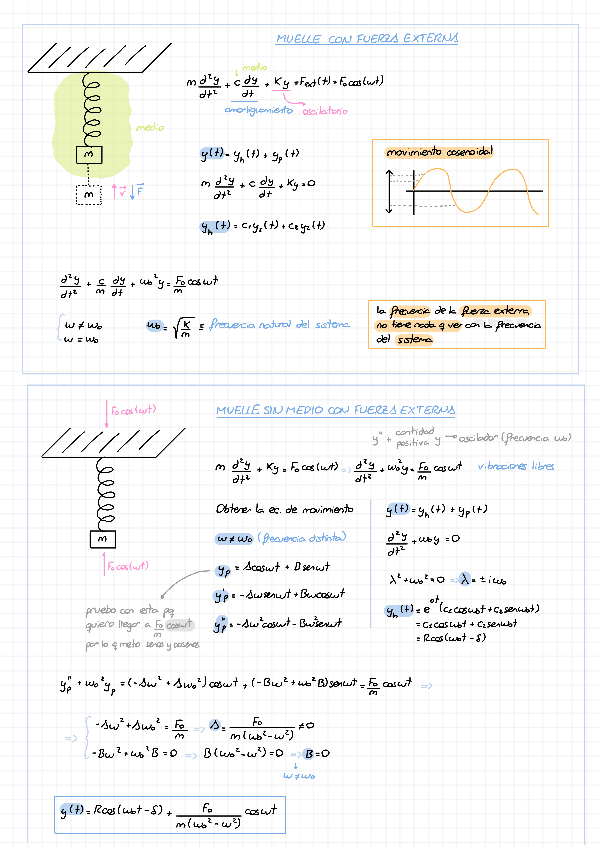 MUELLE CON FUERZA EXTERNA
medio
m d²y/dt² + c dy/dt + Ky = Fext(t) = F₀cos(wt)
amortiguamiento oscilatorio
medio
m
m
v⃗ F⃗
y(t) = yₕ(t) + yₚ(t)
m d²y/dt² + c dy/dt + Ky = 0
yₕ(t) = c₁y₁(t) + c₂y₂(t)
movimiento cosenoidal
d²y/dt² + c/m dy/dt + w₀²y = F₀/m coswt
w ≠ w₀
w = w₀
w₀ = √(K/m) ≡ frecuencia natural del sistema
la frecuencia de la fuerza externa
no tiene nada q ver con la frecuencia
del sistema
F₀cos(wt)
m
F₀cos(wt)
MUELLE SIN MEDIO CON FUERZA EXTERNA
y'' + cantidad positiva y → oscilador (frecuencia w₀)
m d²y/dt² + Ky = F₀cos(wt) => d²y/dt² + w₀²y = F₀/m coswt vibraciones libres
Obtener la ec. de movimiento
w ≠ w₀ (frecuencia distinta)
yₚ = Acoswt + Bsenwt
yₚ' = -Awsenwt + Bwcoswt
yₚ'' = -Aw²coswt - Bw²senwt
pruebo con esta pq
quiero llegar a F₀/m coswt
por lo q meto senos y cosenos
y(t) = yₕ(t) + yₚ(t)
d²y/dt² + w₀y = 0
λ² + w₀² = 0 => λ = ± iw₀
yₕ(t) = e^0t (c₁cosw₀t + c₂senw₀t)
= c₁cosw₀t + c₂senw₀t
= Rcos(w₀t - δ)
yₚ'' + w₀²yₚ = (-Aw² + Aw₀²)coswt + (-Bw² + w₀²B)senwt = F₀/m coswt =>
=> -Aw² + Aw₀² = F₀/m => A = F₀/m(w₀² - w²) ≠ 0
-Bw² + w₀²B = 0 => B(w₀² - w²) = 0 => B = 0
w ≠ w₀
y(t) = Rcos(w₀t - δ) + F₀/m(w₀² - w²) coswt